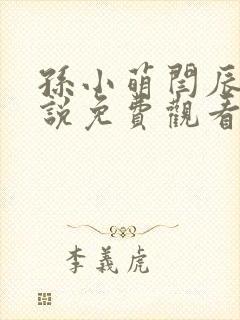 孫小萌閆辰
說免費觀看
李義虎